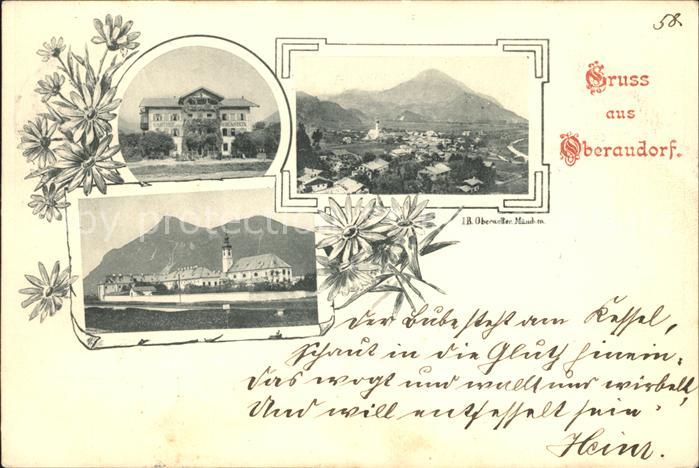 58.
Gruss
aus
Oberaudorf.
I.B. Obernetter, München
Der Bube steht am Kessel,
Schaut in die Gluth hinein.
Das wogt und wallt uns wirbelt,
Und will entfesselt sein.
Heinr.